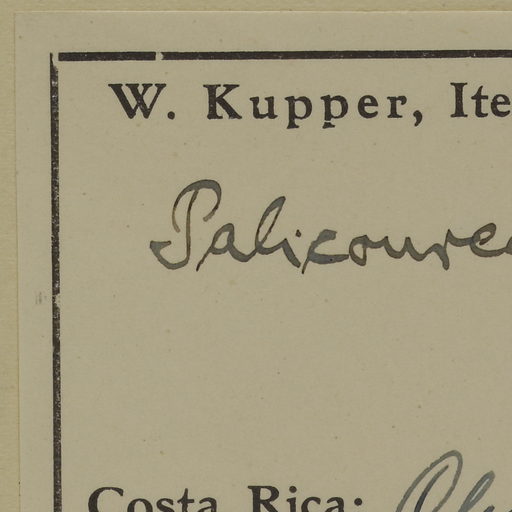 W. Kupper, Ite
Palicourea
Costa Rica: